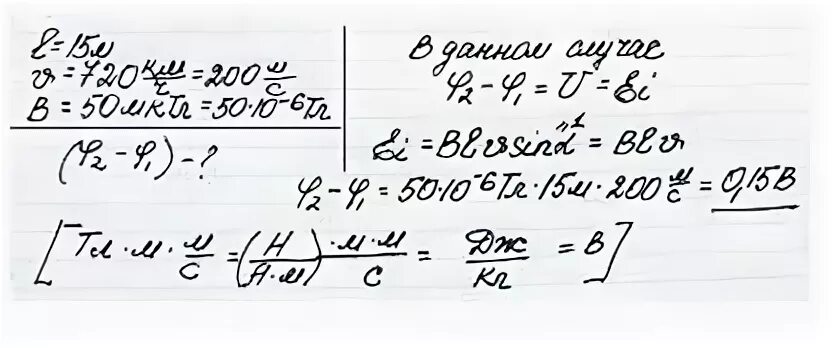 l = 15м
v = 720 км/ч = 200 м/с
B = 50 мкТл = 50·10⁻⁶ Тл
(φ₂ − φ₁) − ?
В данном случае
φ₂ − φ₁ = U = Ɛi
Ɛi = Blv sinα″¹ = Blv
φ₂ − φ₁ = 50·10⁻⁶Тл · 15м · 200 м/с = 0,15В
[Тл · м · м/с = (Н/А·м) · м·м/с = Дж/Кл = В]